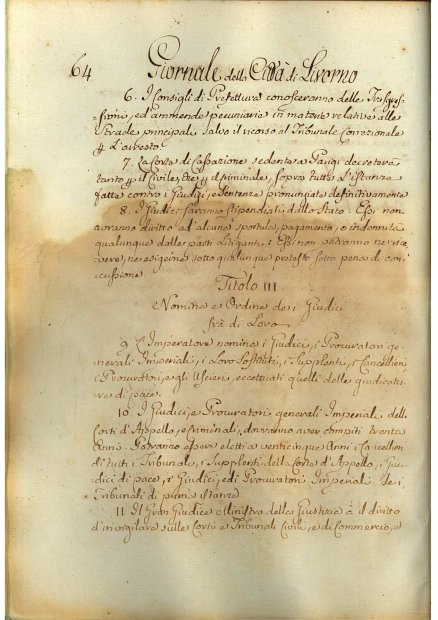 64 Giornale della Città di Livorno
6. I Consigli di Prefettura conosceranno delle Trasgres-
-sioni, ed ammende pecuniarie in materie relative alle
Strade principali salvo il ricorso al Tribunale Correzionale
p l'arresto.
7. La Corte di Cassazione sedente a Parigi decreterà
tanto p il Civile, che p il Criminale, sopra tutte l'istanze
fatte contro i Giudizj, e Sentenze pronunziate definitivamente
8. I Giudici saranno stipendiati dallo Stato: Essi non
avranno diritto ad alcuna sportula, pagamento, o indennità
qualunque dalle parti Litiganti: Essi non potranno ne rice
vere, ne esigere sotto qualunque pretesto sotto pena di con
cussione.
Titolo III
Nomina e Ordine dei Giudici
frà di Loro
9 L'Imperatore nomina i Giudici, i Procuratori ge-
nerali Imperiali, i Loro Sostituti, i Supplenti, i Cancellieri
i Procuratori, e gli Uscieri, eccettuati quelli delle giudicatu
re di pace.
10. I Giudici, e Procuratori generali Imperiali delle
Corti d'Appello, e Criminali, dovranno aver compiti trenta
Anni. Potranno esser eletti a venticinque Anni i Cancellieri
di tutti i Tribunali, i Supplenti della Corte d'Appello, i Giu-
dici di pace, i Giudici, ed i Procuratori Imperiali dei
Tribunali di prima istanza
11. Il Gran Giudice e Ministro della Giustizia à il diritto
d'invigilare sulle Corti e Tribunali Civili, e di Commercio, e